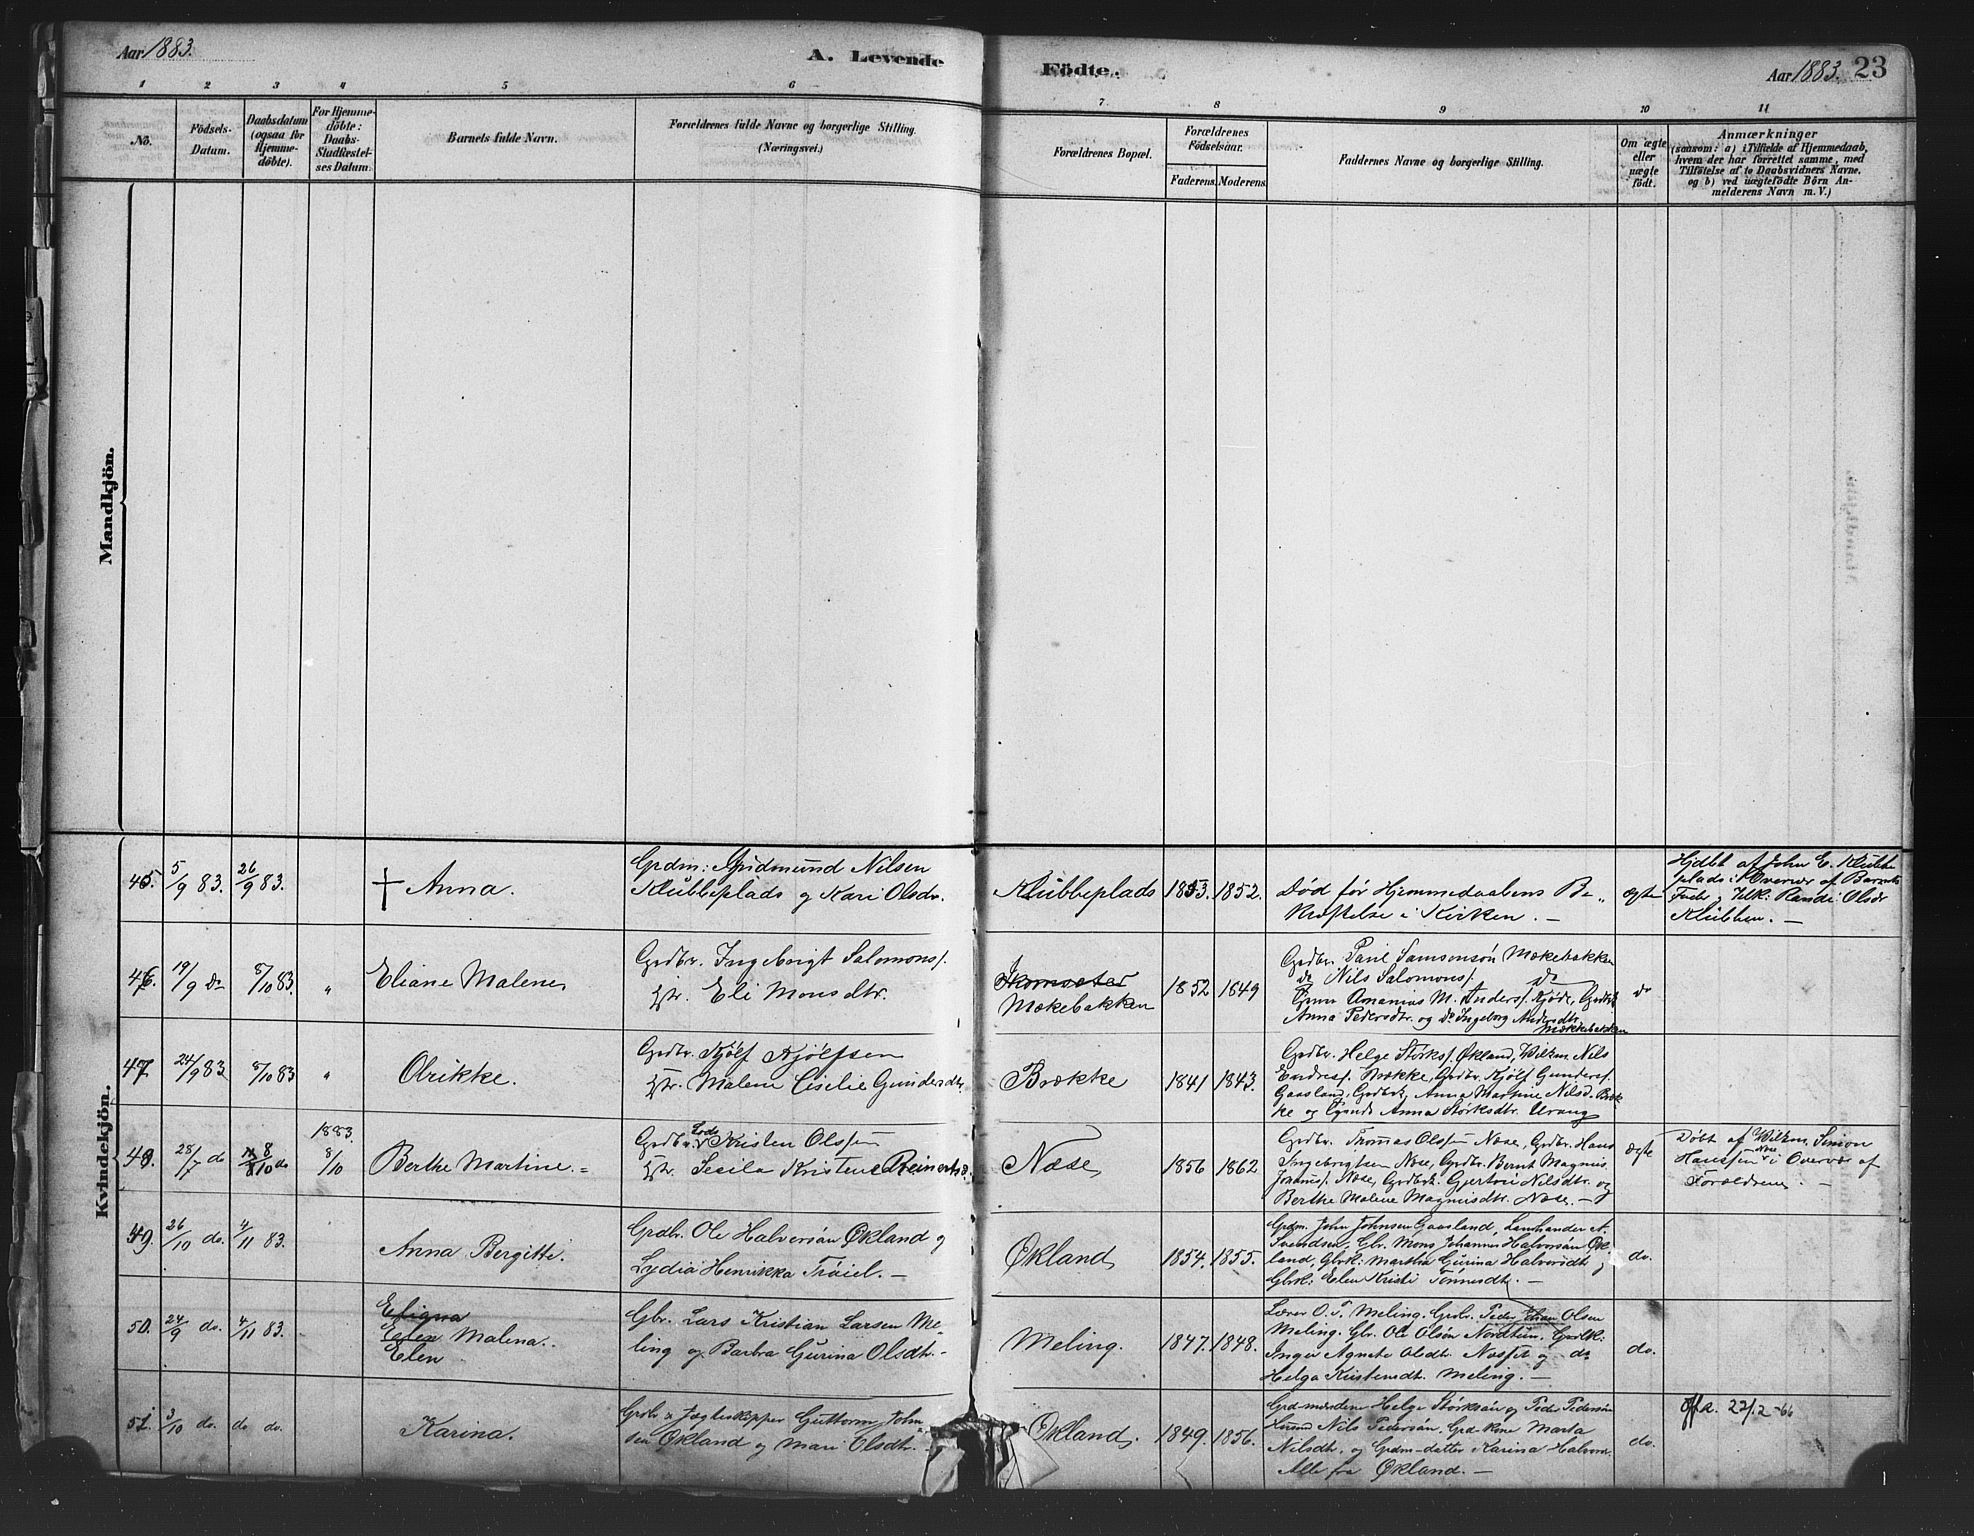 Aar 1883.
A. Levende
Födte.
Aar 1883. 23
1 2 3 4 5 6 7 8 9 10 11
No.
Födsels-
Datum.
Daabsdatum
(ogsaa for
Hjemme-
döbte).
For Hjemme-
döbte:
Daabs-
Stadfæstel-
ses Datum.
Barnets fulde Navn.
Forældrenes fulde Navne og borgerlige Stilling.
(Næringsvei.)
Forældrenes Bopæl.
Forældrenes
Födselsaar.
Faderens. Moderens.
Faddernes Navne og borgerlige Stilling.
Om ægte
eller
uægte
födt.
Anmærkninger
(saasom: a) i Tilfælde af Hjemmedaab,
hvem der har forrettet samme, med
Tilföielse af to Daabsvidners Navne,
og b) ved uægtefödte Börn An-
melderens Navn m. V.)
Mandkjön.
Kvindekjön.
45. 5/9 83. 26/9 83.
† Anna.
Grdm: Gudmund Nilsen
Klubbeplads og Kari Olsdr.
Klubbeplads
1853. 1852.
Död för Hjemmedaabens Be-
kræftelse i Kirken. —
ægte
Hjdbt af John E. Klubbe
plads i Overvær af Barnets
Fader og Jrlk: Randi Olsdr
Klubben. —
46. 19/9 do 8/10 83. "
Eliane Malene
Grdbr. Ingebrigt Salomons/.
Hstr. Eli Monsdtr.
Mækebakken
1852 1849
Grdbr. Paul Samsonsøn Mækebakken
do Nils Salomons/. do
Anna Pedersdtr. og do Ingeborg Andersdtr.
Mækkebakken
do
47. 24/9 83 8/10 83 "
Olrikke.
Grdbr. Kjölf Kjölfsen
Hstr. Malene Cicelie Gundersdtr.
Brække
1841 1843.
Grdbr. Helge Störks/. Økland, Wilkm Nils
Endres/. Brække, Grdbr. Kjölf Gunders/.
Gaasland, Grdbrk. Anna Martine Nilsd. Bræk-
ke og Anna Störksdtr. Urang
48. 28/7 do 8/10 do 1883. 8/10
Berthe Martine. =
Grdbr. Lods Kristen Olssen
Hstr. Sesila Kristene Reinertsd.
Næse
1856 1862.
Grdbr. Thomas Olssen Næse, Grdbr. Hans
Ingebrigtsen Næse, Grdbr. Bernt Magnus
Johannes/. Næse, Grdbrk. Gjertrui Nilsdtr. og
Berthe Malene Magnusdtr. Næse. —
ægte
Døbt af Wilkm. Simon
Hanssen Næse i Overvær af
Foraldrene. —
49. 26/10 do. 4/11 83.
Anna Bergitte.
Grdbr. Ole Halversön Økland og
Lydia Henrikka Tröiel. —
Økland
1854. 1855.
Grdm. John Johnsen Gaasland, Lanhandler A.
Svendsen, Gbr. Mons Johannes Halversön Øk-
land, Gbrk: Martha Gurina Halversdt og
Gbrk: Elen Kristi Tönnesdt. —
do.
50. 24/9 do. 4/11 83.
Elen Malena.
Elen
Gbr. Lars Kristian Larsen Me-
ling og Barbra Gurina Olsdt. —
Meling.
1847. 1848.
Lærer O. T. Meling. Grbr. Peder Johan Olsen
Meling. Gbr. Ole Olsön Nordtun, Grdbk:
Inger Agnete Oldt. Næsset og do
Helga Kristensdt. Meling. —
do.
51. 3/10 do. do do.
Karina.
Grdbr & Jægteskipper Guttorm John-
sen Økland og Mari Olsdt. —
Økland.
1849. 1856.
Grdmanden Helge Störksön og Peder Pedersön
Nils Pedersön. Grd-kone Marta
Nilsdt. og Grdm-datter Karina Halvors.
Alle fra Økland. —
do.
22/.2-66